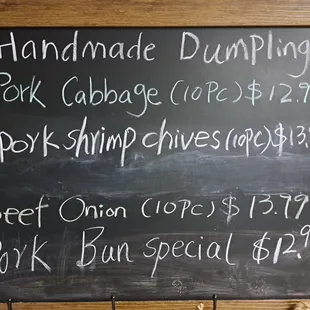 Handmade Dumpling
Pork Cabbage (10PC) $12.9
pork shrimp chives (10PC) $13.
Beef Onion (10PC) $13.99
Pork Bun special $12.9